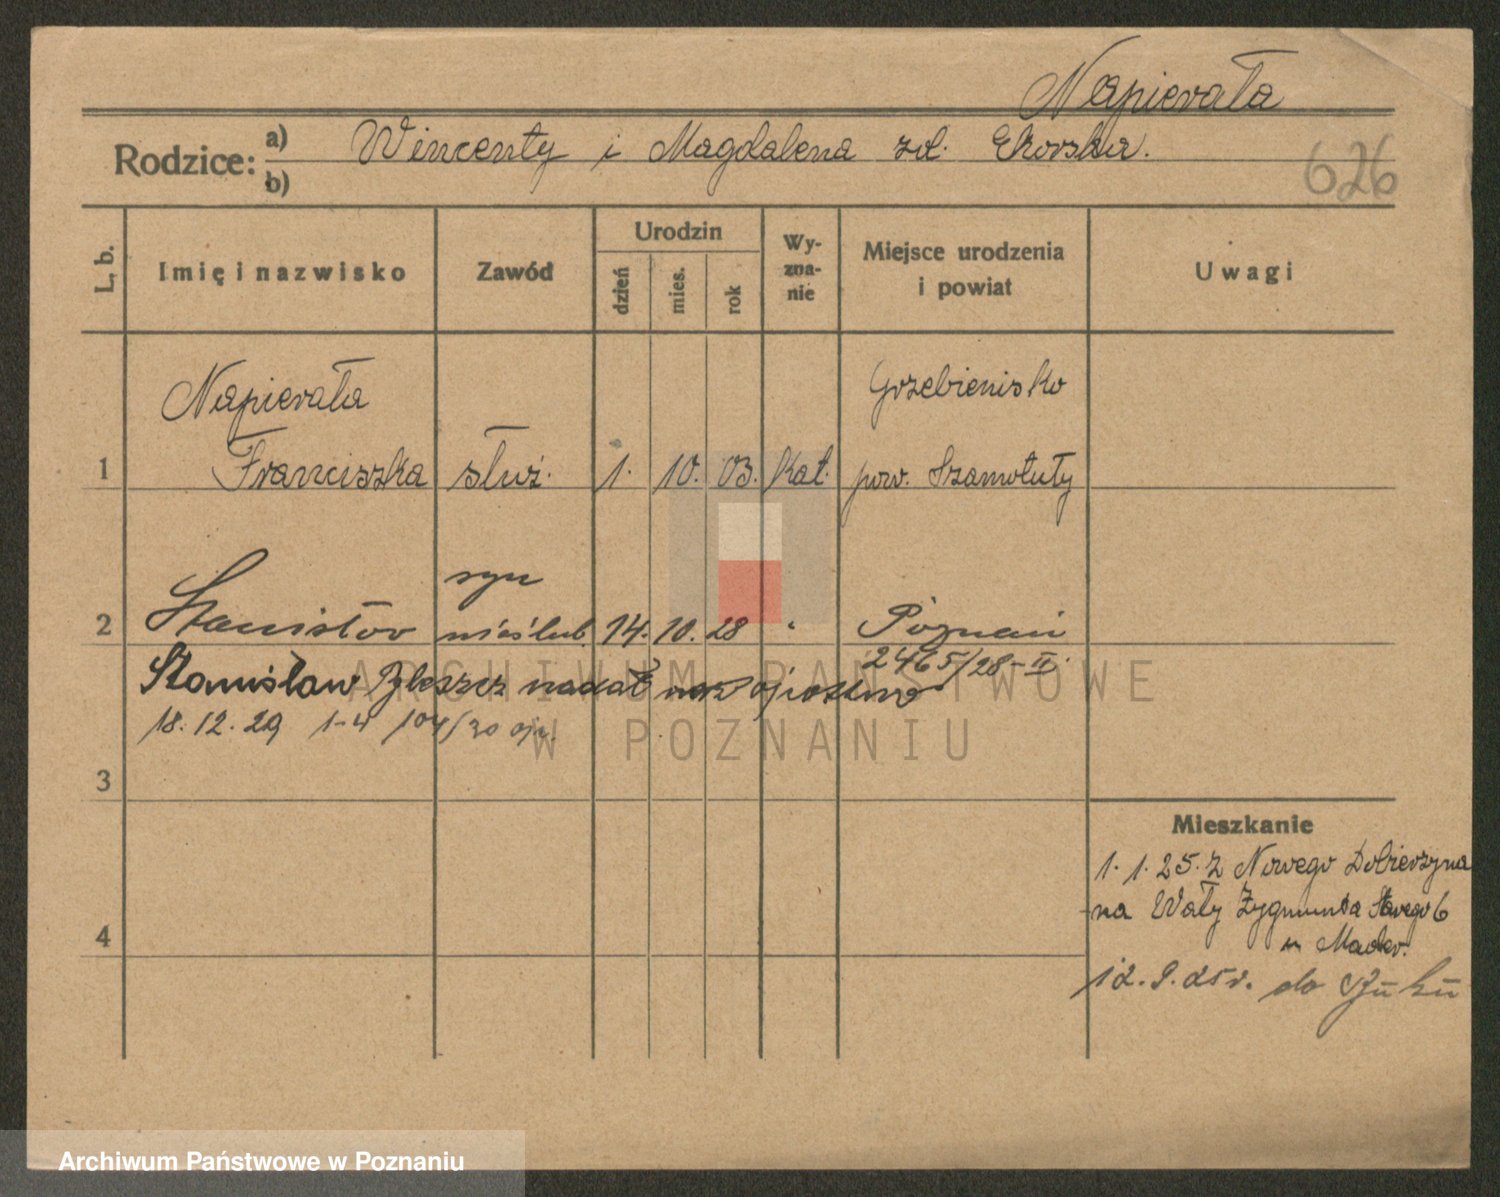 Napierała
Rodzice: a) Wincenty i Magdalena zd.
b)
626
L. b.
Imię i nazwisko
Zawód
Urodzin
dzień
mies.
rok
Wy-
zna-
nie
Miejsce urodzenia
i powiat
Uwagi
Napierała Grzebienisko
1 Franciszka służ. 1. 10. 03. kat. pow. Szamotuły
syn
2 Stanisław nieślub. 14. 10. 28 " Poznań
2465/28-II.
Stanisław nadał
18.12.29 1-4 104/30
3
4
Mieszkanie
1. 1. 25. z Nowego Dobierzyna
na Wały Zygmunta Starego 6
do
ARCHIWUM PAŃSTWOWE
W POZNANIU
Archiwum Państwowe w Poznaniu